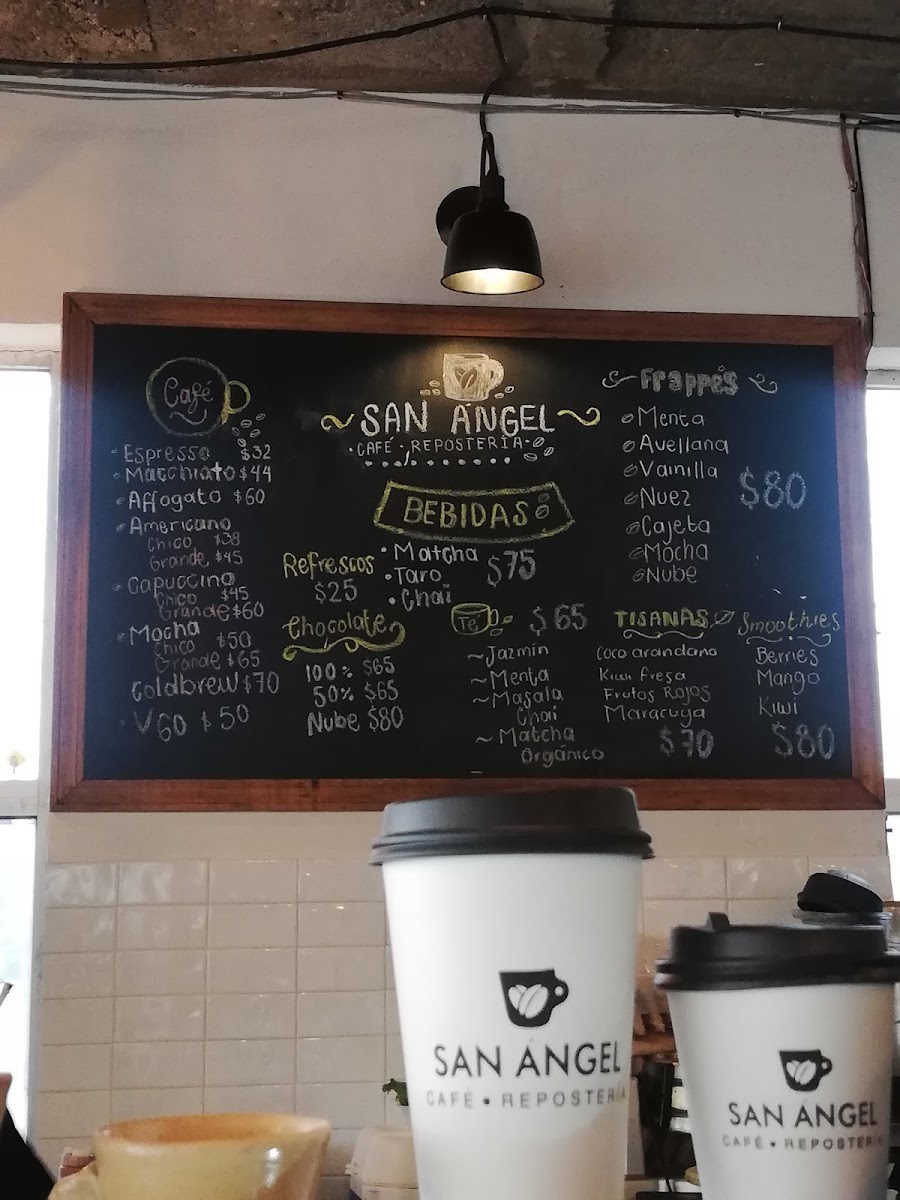 Café
Espresso $32
Macchiato $44
Affogato $60
Americano
Chico $38
Grande $45
Capuccino
Chico $45
Grande $60
Mocha
Chico $50
Grande $65
Coldbrew $70
V60 $50
SAN ÁNGEL
•CAFÉ•REPOSTERÍA•
BEBIDAS
Refrescos
$25
• Matcha
• Taro
• Chai
$75
Chocolate
100% $65
50% $65
Nube $80
Té $65
~Jazmín
~Menta
~Masala
Chai
~Matcha
Orgánico
Frappés
Menta
Avellana
Vainilla
Nuez
Cajeta
Mocha
Nube
$80
TISANAS
Coco arandano
Kiwi fresa
Frutos Rojos
Maracuya
$70
Smoothies
Berries
Mango
Kiwi
$80
SAN ÁNGEL
CAFÉ • REPOSTERÍA
SAN ÁNGEL
CAFÉ • REPOSTERÍA